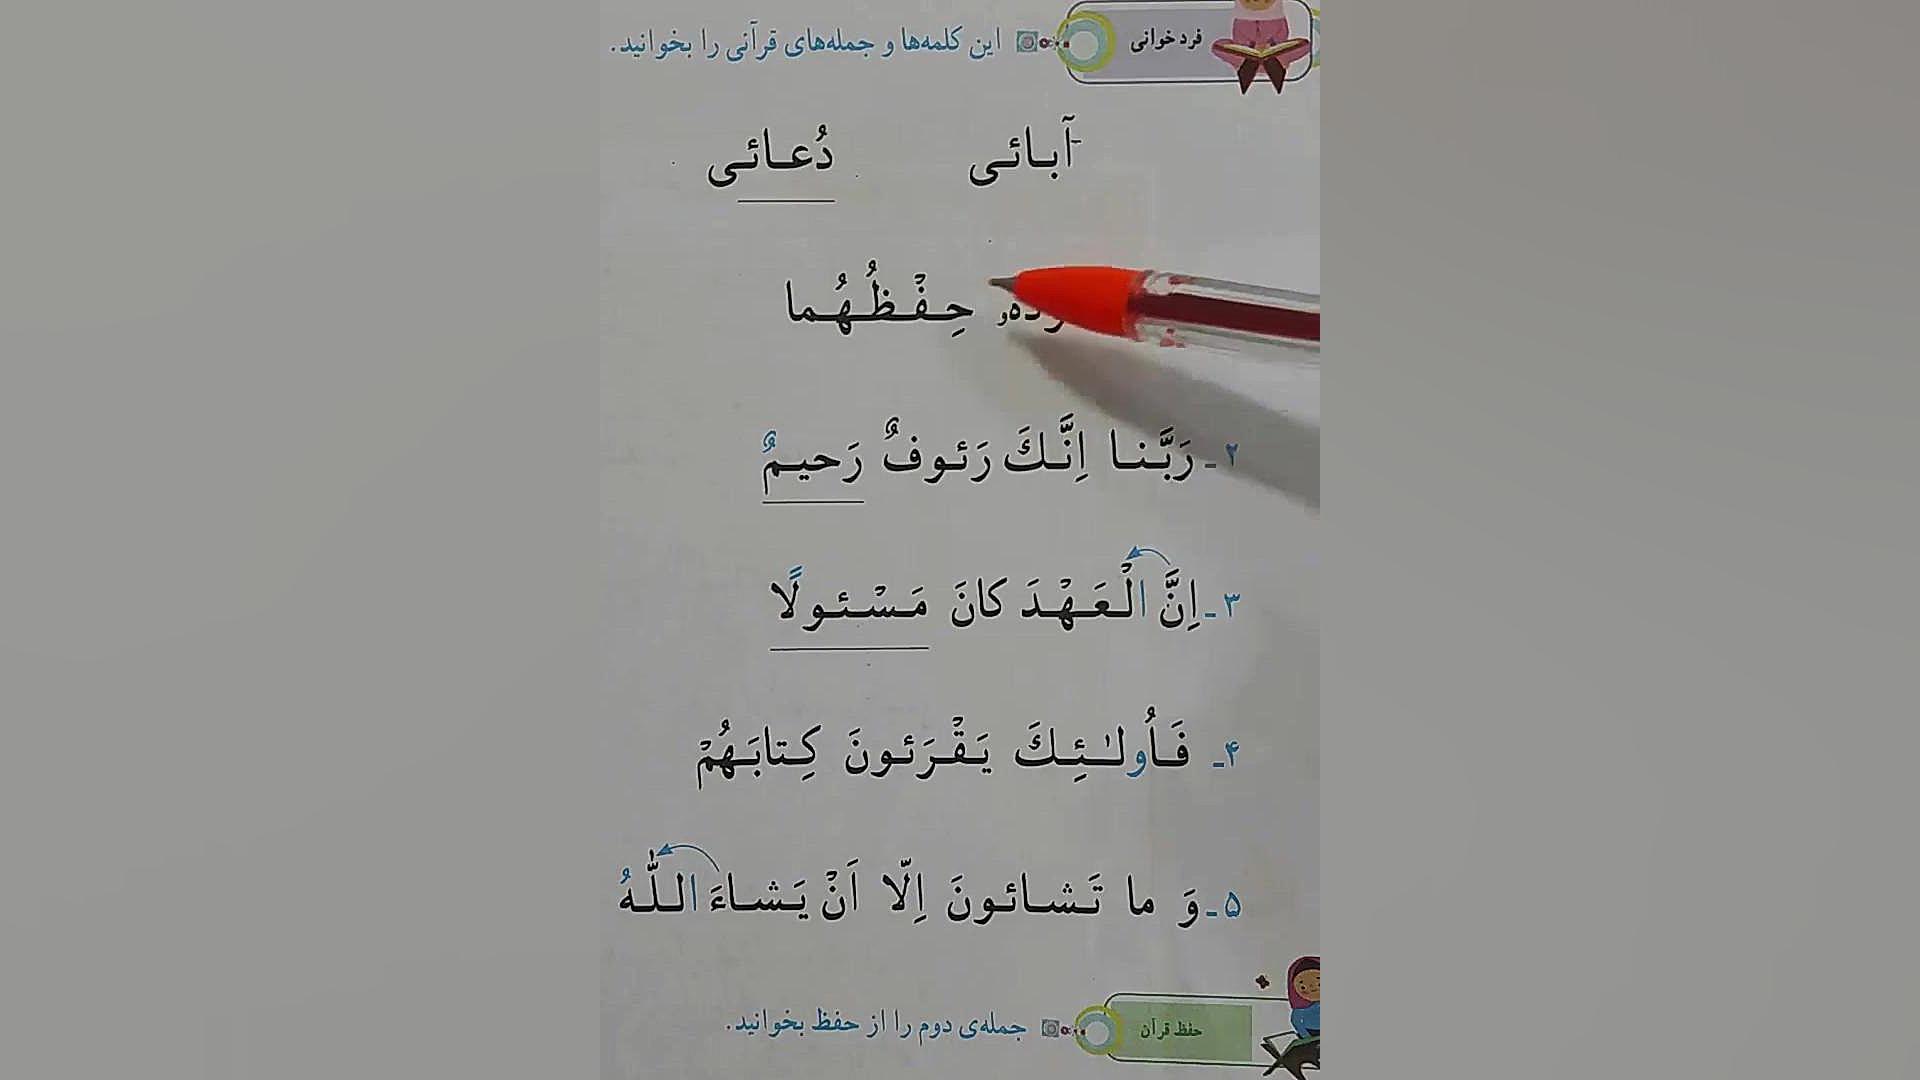 فردخوانی این کلمه‌ها و جمله‌های قرآنی را بخوانید.
آبـائـی دُعـائـی
حِـفْـظُـهُـما
۲ـ رَبَّـنـا اِنَّـكَ رَئـوفٌ رَحیـمٌ
۳ـ اِنَّ الْـعَـهْـدَ كانَ مَـسْـئـولًا
۴ـ فَـاُولـٰـئِـكَ یَـقْـرَئـونَ كِـتابَـهُـمْ
۵ـ وَ ما تَـشـائـونَ اِلّا اَنْ یَـشـاءَ اللّٰـهُ
حفظ قرآن جمله‌ی دوم را از حفظ بخوانید.